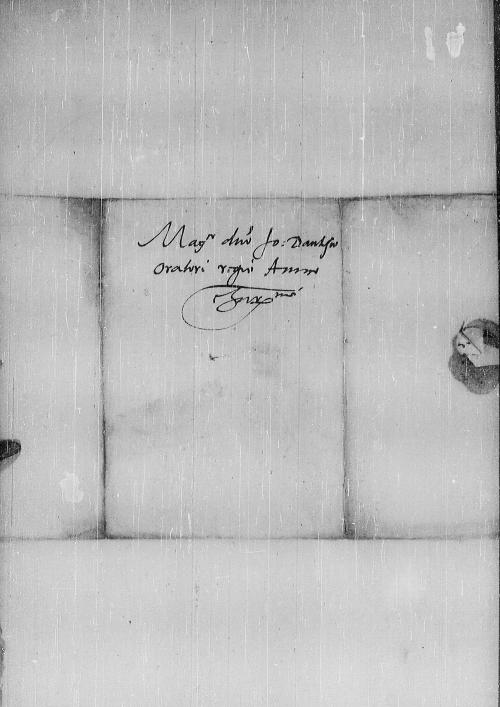 Mag.co dno Jo: Dantisco
Oratori regio Amico